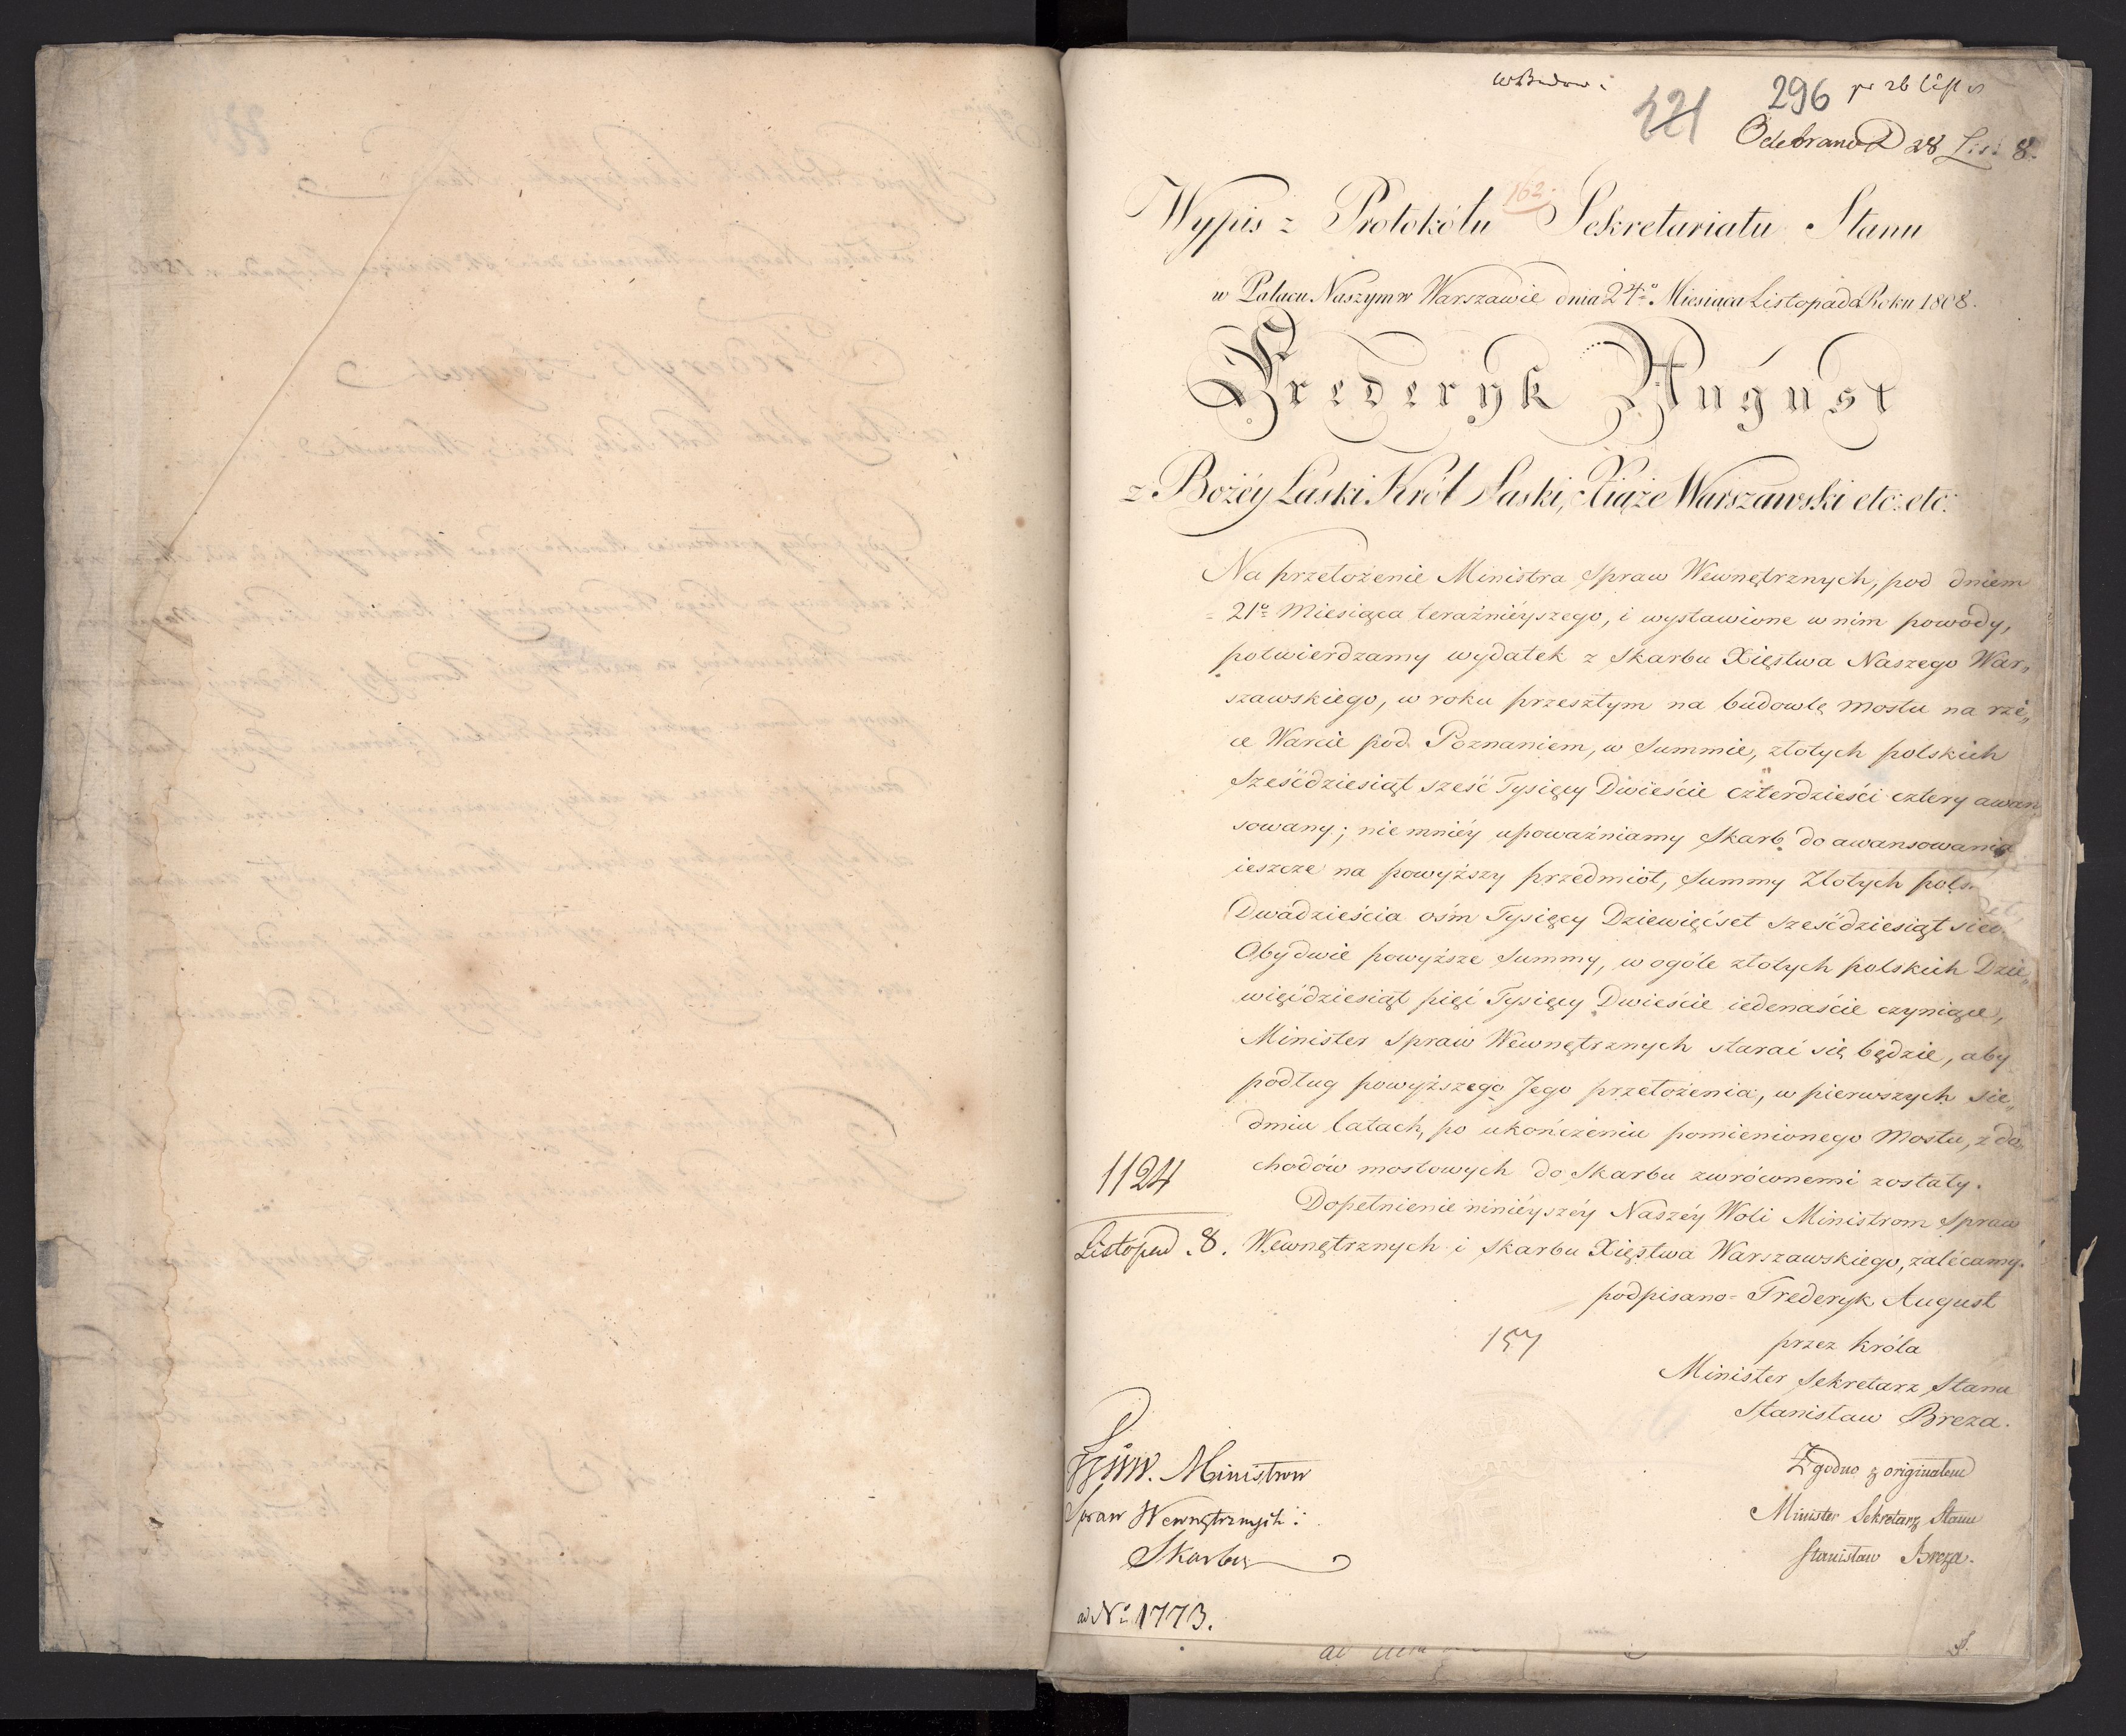 296
221
Odebrano D 28 List 8.
162.
Wypis z Protokółu Sekretariatu Stanu
w Pałacu Naszym w Warszawie dnia 24º Miesiąca Listopada Roku 1808.
Frederyk August
z Bożéy Łaski Król Saski, Xiąże Warszawski etc: etc:
Na przełożenie Ministra Spraw Wewnętrznych, pod dniem
21º Miesiąca teraźniéyszego, i wystawione w nim powody,
potwierdzamy wydatek z Skarbu Xięstwa Naszego War„
szawskiego, w roku przeszłym na budowlę mostu na rzé„
ce Warcie pod Poznaniem, w Summie, złotych polskich
Sześćdziesiąt sześć Tysięcy Dwieście czterdzieści cztery awan
sowany; nie mniéy upoważniamy Skarb do awansowania
ieszcze na powyższy przedmiot, Summy Złotych pols.
Dwadzieścia ośm Tysięcy Dziewięćset sześćdziesiąt sied
Obydwie powyższe Summy, w ogóle złotych polskich Dzie„
więćdziesiąt pięć Tysięcy Dwieście iedenaście czyniące,
Minister Spraw Wewnętrznych starać się będzie, aby
podług powyższego Jego przełożenia, w pierwszych sie„
dmiu latach, po ukończeniu pomienionego Mostu, z do„
chodów mostowych do Skarbu zwróconemi zostały.
Dopełnienie niniéyszéy Naszéy Woli Ministrom Spraw
Wewnętrznych i Skarbu Xięstwa Warszawskiego, zalecamy.
1124
Listopad. 8.
podpisano = Frederyk August
przez Króla
Minister Sekretarz Stanu
Stanisław Breza.
157
Zgodno z originałem
Minister Sekretarz Stanu
Stanisław Breza.
Ministrom
Spraw Wewnętrznych i
Skarbu
ad Nº 1773.